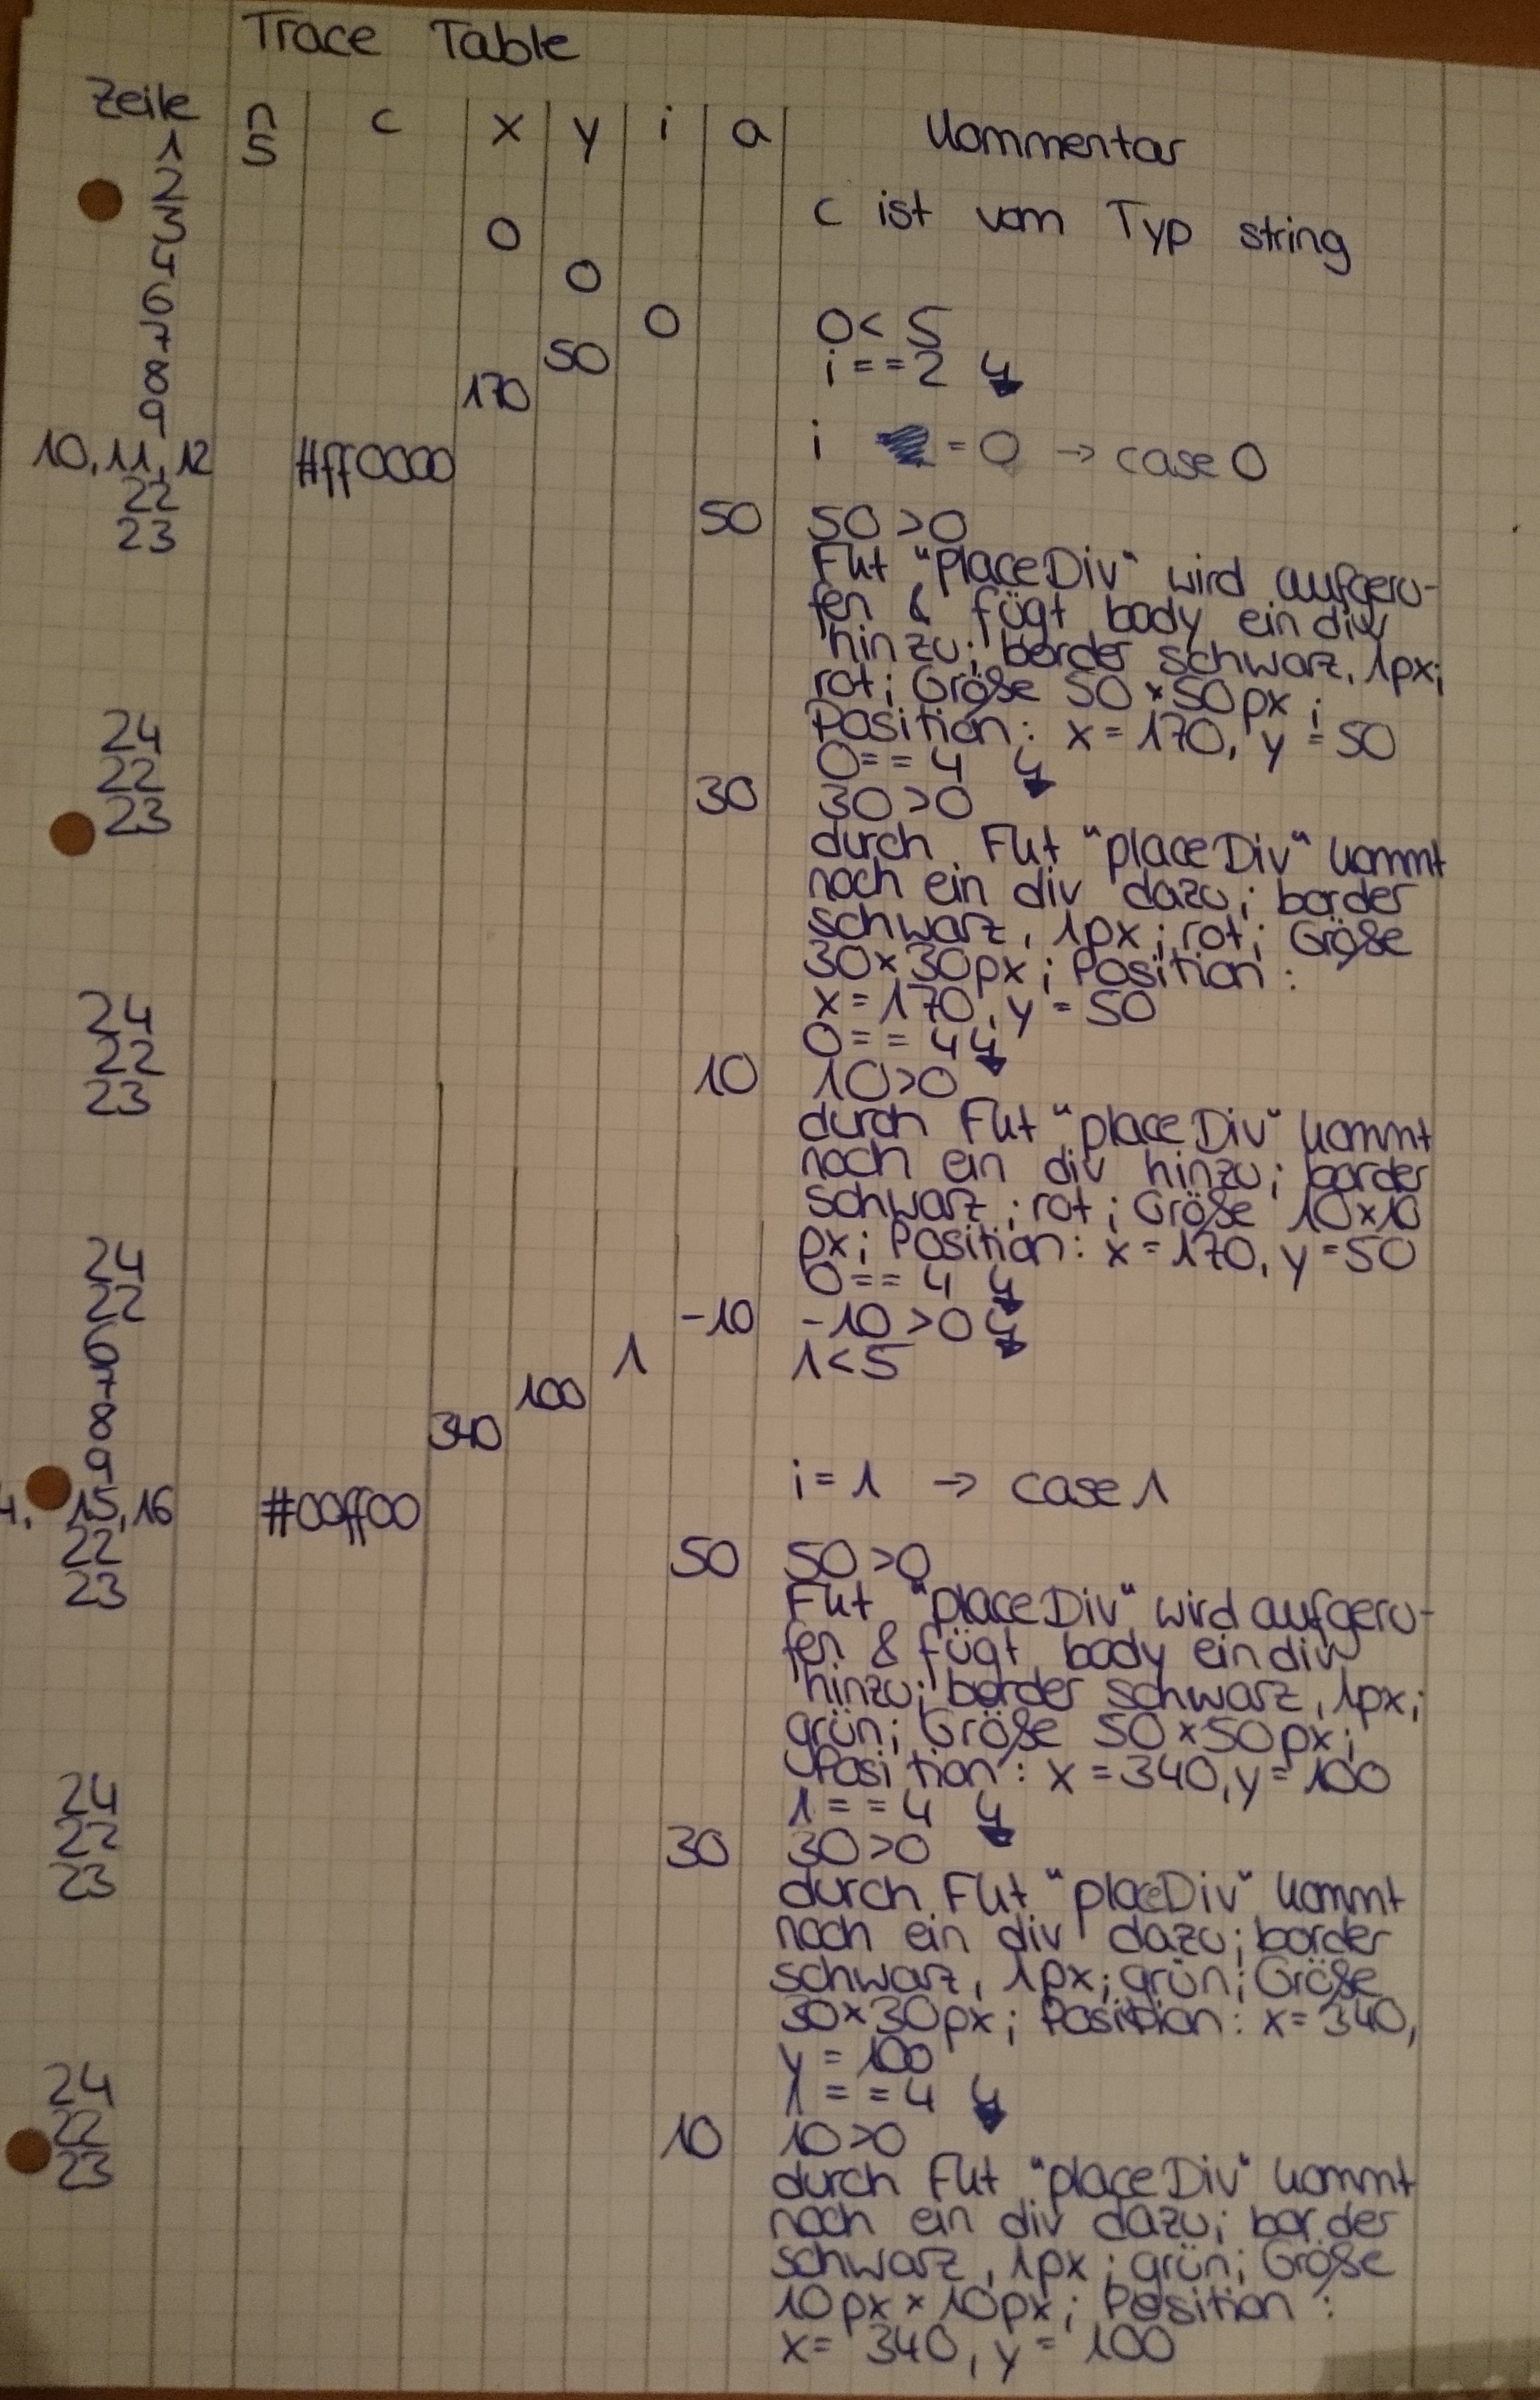 Trace Table
Zeile n c x y i a Kommentar
1 5
2 c ist vom Typ string
3 0
4 0
6 0 0 < 5
7 50 i == 2 ↯
8 170
9 i = 0 → case 0
10, 11, 12 #ff0000
22 50 50 > 0
23 Fkt "placeDiv" wird aufgeru-
fen & fügt body ein div
hinzu; border schwarz, 1px;
rot; Größe 50 × 50px;
24 Position: x = 170, y = 50
0 == 4 ↯
22 30 30 > 0
23 durch Fkt "placeDiv" kommt
noch ein div dazu; border
schwarz, 1px; rot; Größe
30 × 30px; Position:
x = 170, y = 50
24 0 == 4 ↯
22 10 10 > 0
23 durch Fkt "placeDiv" kommt
noch ein div hinzu; border
schwarz; rot; Größe 10 × 10
px; Position: x = 170, y = 50
24 0 == 4 ↯
22 -10 -10 > 0 ↯
6 1 1 < 5
7 100
8 340
9 i = 1 → case 1
15, 16 #00ff00
22 50 50 > 0
23 Fkt "placeDiv" wird aufgeru-
fen & fügt body ein div
hinzu; border schwarz, 1px;
grün; Größe 50 × 50px;
Position: x = 340, y = 100
24 1 == 4 ↯
22 30 30 > 0
23 durch Fkt "placeDiv" kommt
noch ein div dazu; border
schwarz, 1px; grün; Größe
30 × 30px; Position: x = 340,
y = 100
24 1 == 4 ↯
22 10 10 > 0
23 durch Fkt "placeDiv" kommt
noch ein div dazu; border
schwarz, 1px; grün; Größe
10px × 10px; Position:
x = 340, y = 100